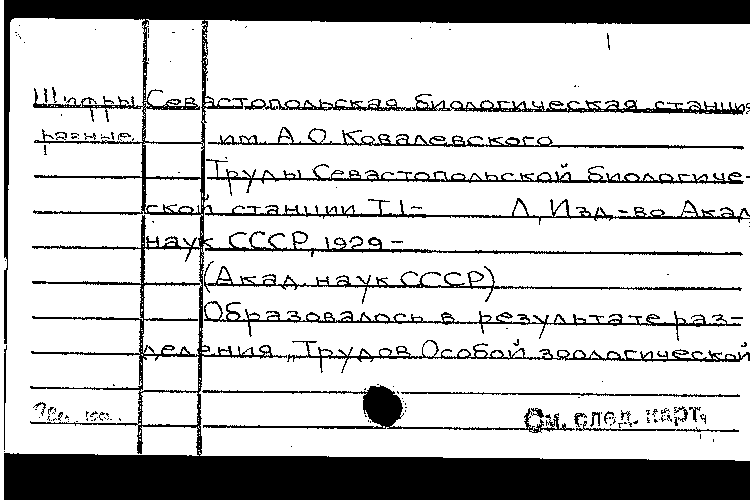 Шифры Севастопольская биологическая станция
разные им. А.О. Ковалевского
Труды Севастопольской биологиче-
ской станции Т.1- Л, Изд-во Акад.
наук СССР, 1929-
(Акад. наук СССР)
Образовалось в результате раз-
деления „Трудов Особой зоологической
См. след. карт.